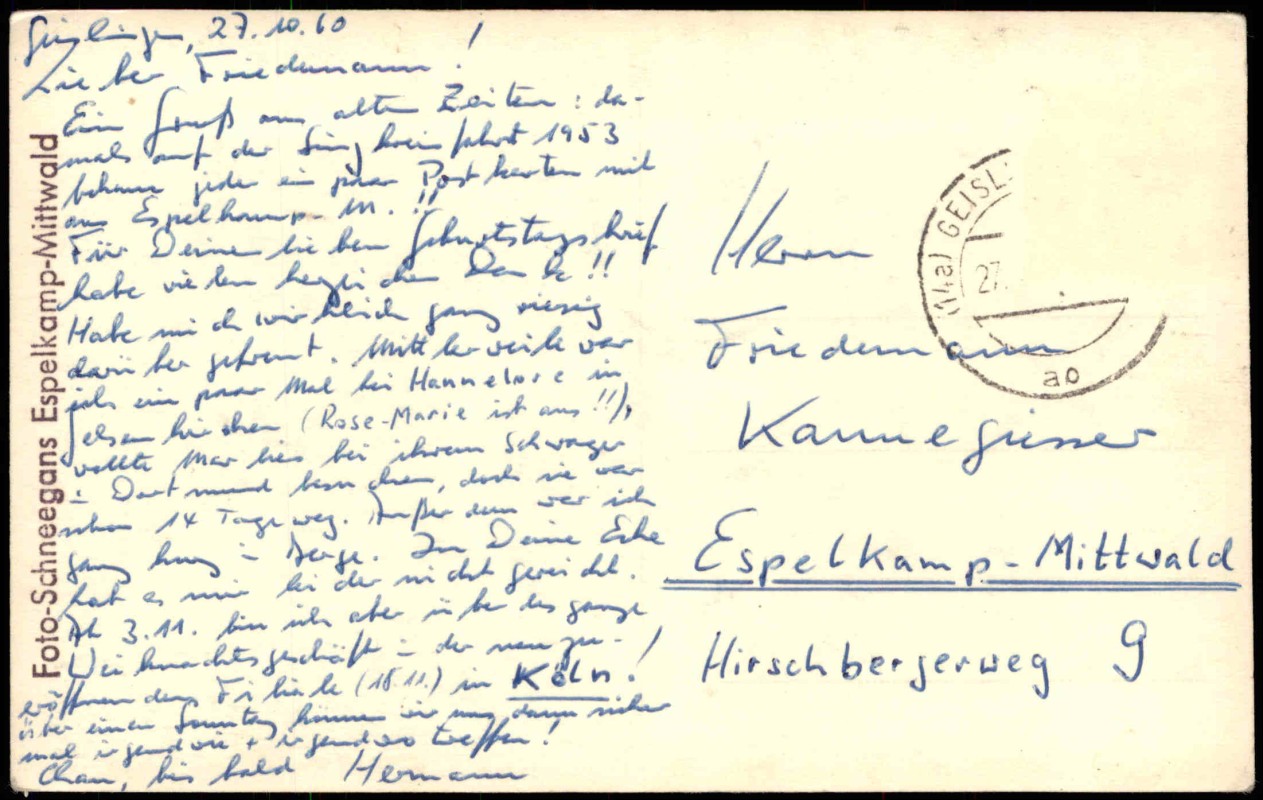 Geislingen, 27.10.60
Lieber Friedemann!
Ein Gruß aus alten Zeiten: da-
mals auf der Singkreisfahrt 1953
bekam jeder ein paar Postkarten mit
aus Espelkamp-M.!!
Für Deinen lieben Geburtstagsbrief
habe vielen herzlichen Dank!!
Habe mich wirklich ganz riesig
darüber gefreut. Mittlerweile war
ich ein paar Mal bei Hannelore in
Gelsenkirchen (Rose-Marie ist aus!!),
wollte Marlies bei ihrem Schwager
in Dortmund besuchen, doch sie war
schon 14 Tage weg. Außerdem war ich
ganz kurz in Berge. In Deine Ecke
hat es mir leider nicht gereicht.
Ab 3.11. bin ich aber über das ganze
Weihnachtsgeschäft in der neu zu-
eröffnenden Filiale (18.11.) in Köln!
über einen Sonntag können wir uns dann sicher
mal irgendwie + irgendwo treffen!
Ciau, bis bald Hermann
Foto-Schneegans Espelkamp-Mittwald
(14a) GEISL
27.
ao
Herrn
Friedemann
Kannegiesser
Espelkamp-Mittwald
Hirschbergerweg 9